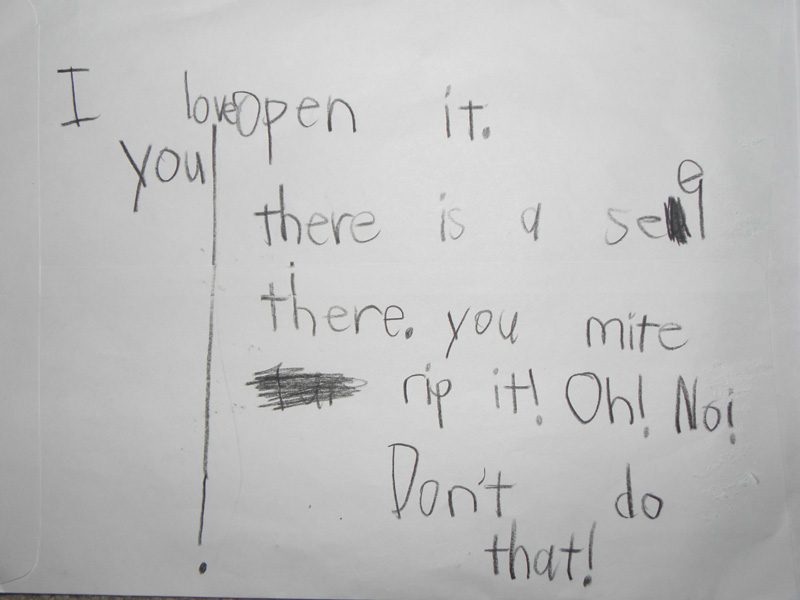 I love
you!
Open it.
there is a seel
there. you mite
rip it! Oh! No!
Don't do
that!